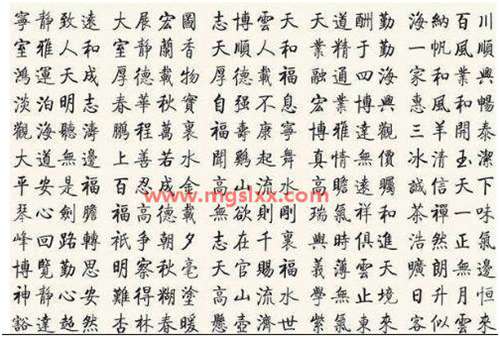 寧靜致遠 大展宏圖 志博雲天 天道酬勤 海納百川
室雅人和 室靜蘭香 人和 業精于勤 一帆風順
鴻運天成 厚德載物 厚德載福 融通四海 家和業興
淡泊明志 春華秋實 自强不息 宏業博興 惠風和暢
觀海聽濤 鵬程萬裏 福壽康寧 博雅達觀 三羊開泰
大道無邊 上善若水 聞鷄起舞 真情無價 冰清玉潔
平安是福 百忍成金 高山流水 高瞻遠矚 誠信天下
www.mgslxx.com
琴心劍膽 福高德載 無欲則剛 瑞氣祥和 茶禪一味
峰回路轉 祇争朝夕 志在千裏 與時俱進 浩然正氣
博覽勤思 明察秋毫 天官賜福 義薄雲天 朗無邊
神静心安 難得糊塗 高山流水 學無止境 日升月恒
豁達超然 杏林春暖 懸壺濟世 紫氣東來 客似雲來